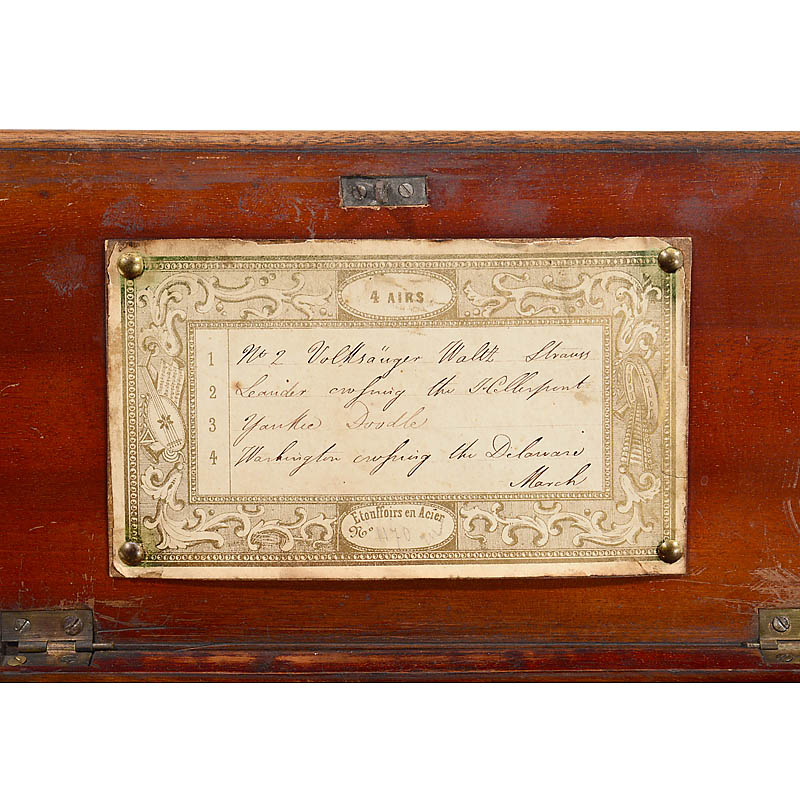 4 AIRS.
1 No 2 Volksäuger Waltz Strauss
2 Leander crossing the Hellerpont
3 Yankee Doodle
4 Washington crossing the Delaware
March
Etouffoirs en Acier
No.